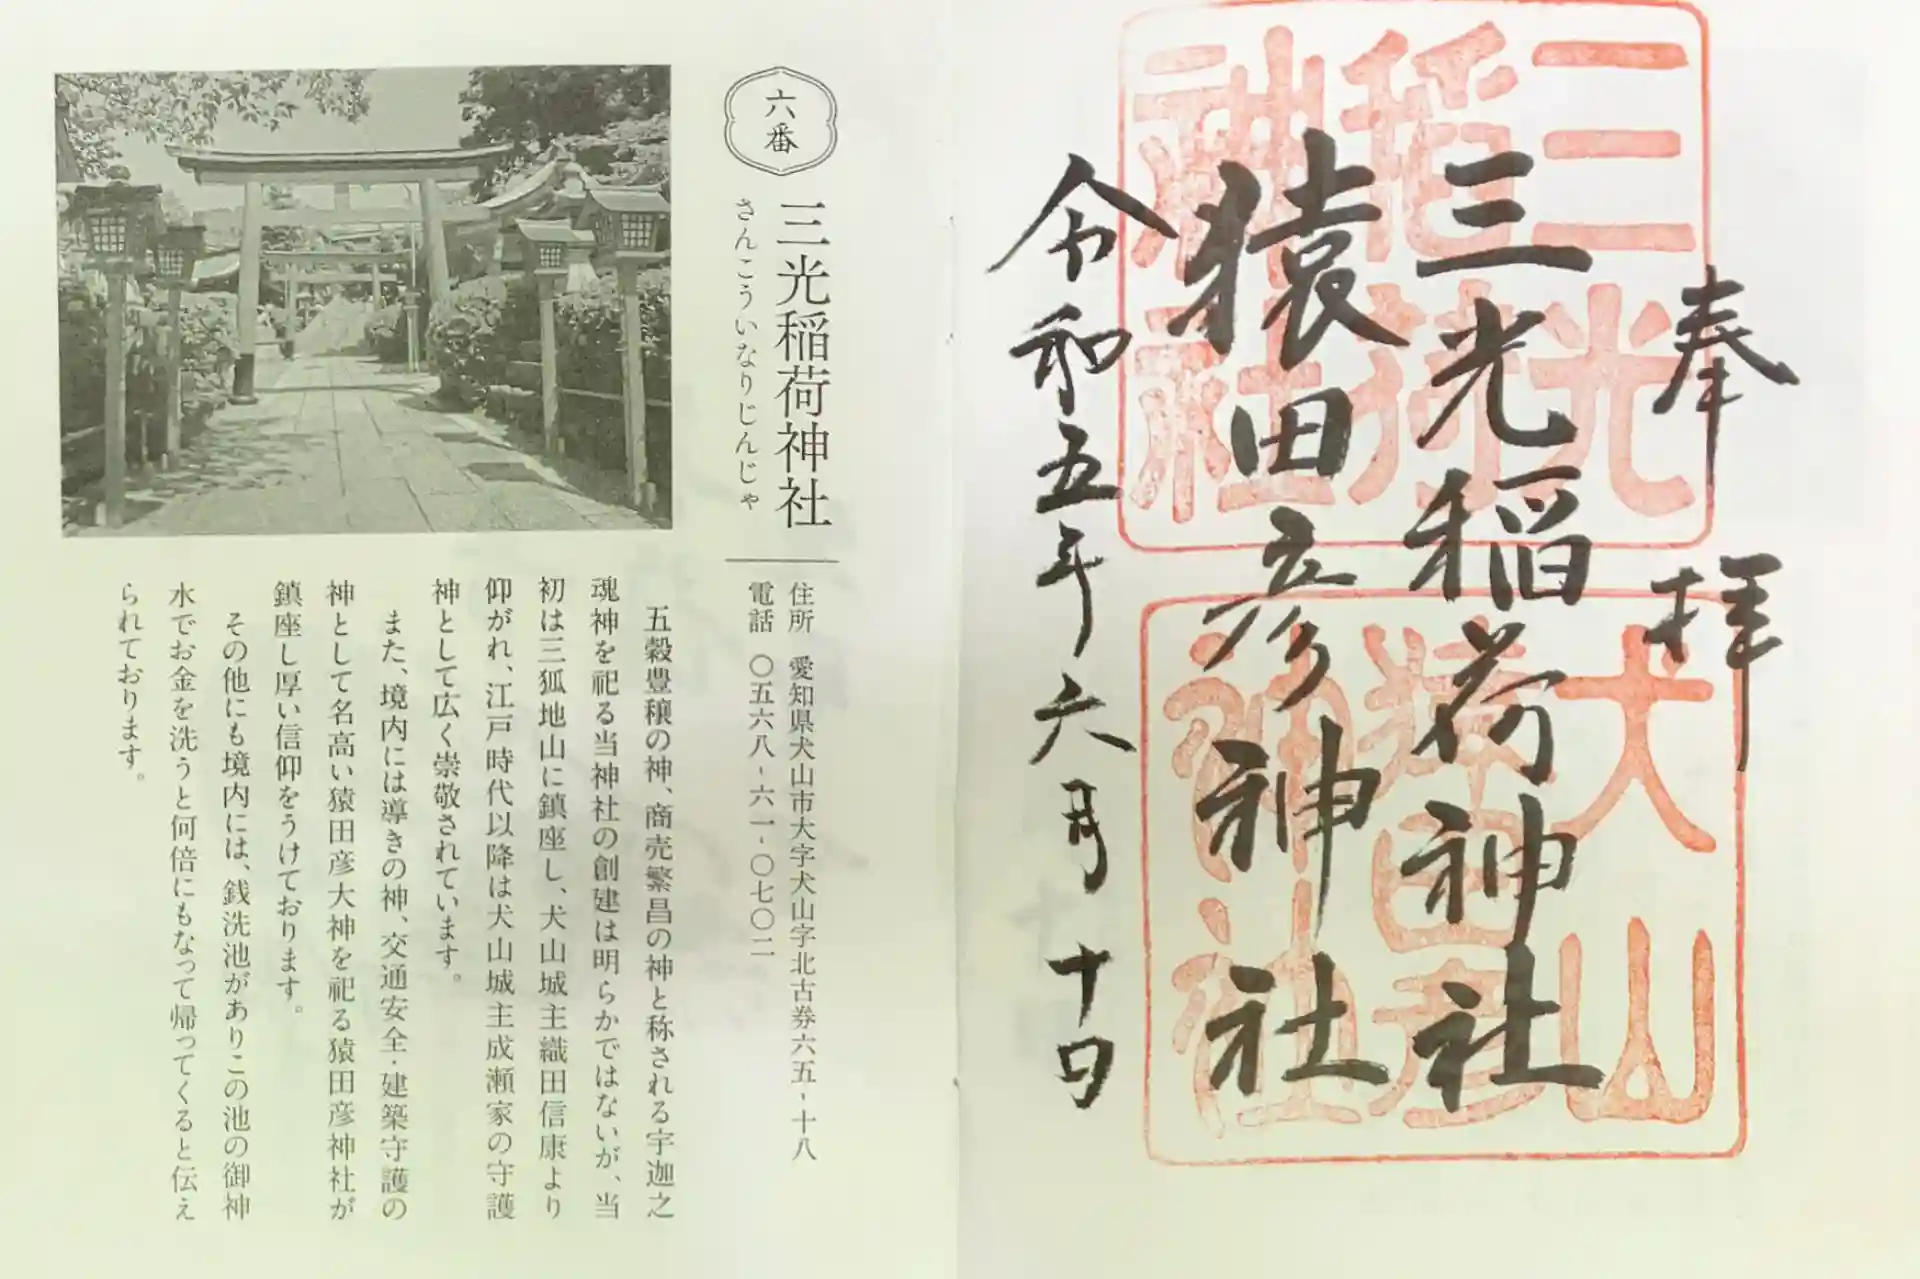 奉拝
三光稲荷神社
猿田彦神社
令和五年六月十日
三光
稲荷
神社
犬山
猿田彦
神社
六番
三光稲荷神社
さんこういなりじんじゃ
住所 愛知県犬山市大字犬山字北古券六五-十八
電話 〇五六八-六一-〇七〇二
五穀豊穣の神、商売繁昌の神と称される宇迦之
魂神を祀る当神社の創建は明らかではないが、当
初は三狐地山に鎮座し、犬山城主織田信康より
仰がれ、江戸時代以降は犬山城主成瀬家の守護
神として広く崇敬されています。
また、境内には導きの神、交通安全・建築守護の
神として名高い猿田彦大神を祀る猿田彦神社が
鎮座し厚い信仰をうけております。
その他にも境内には、銭洗池がありこの池の御神
水でお金を洗うと何倍にもなって帰ってくると伝え
られております。